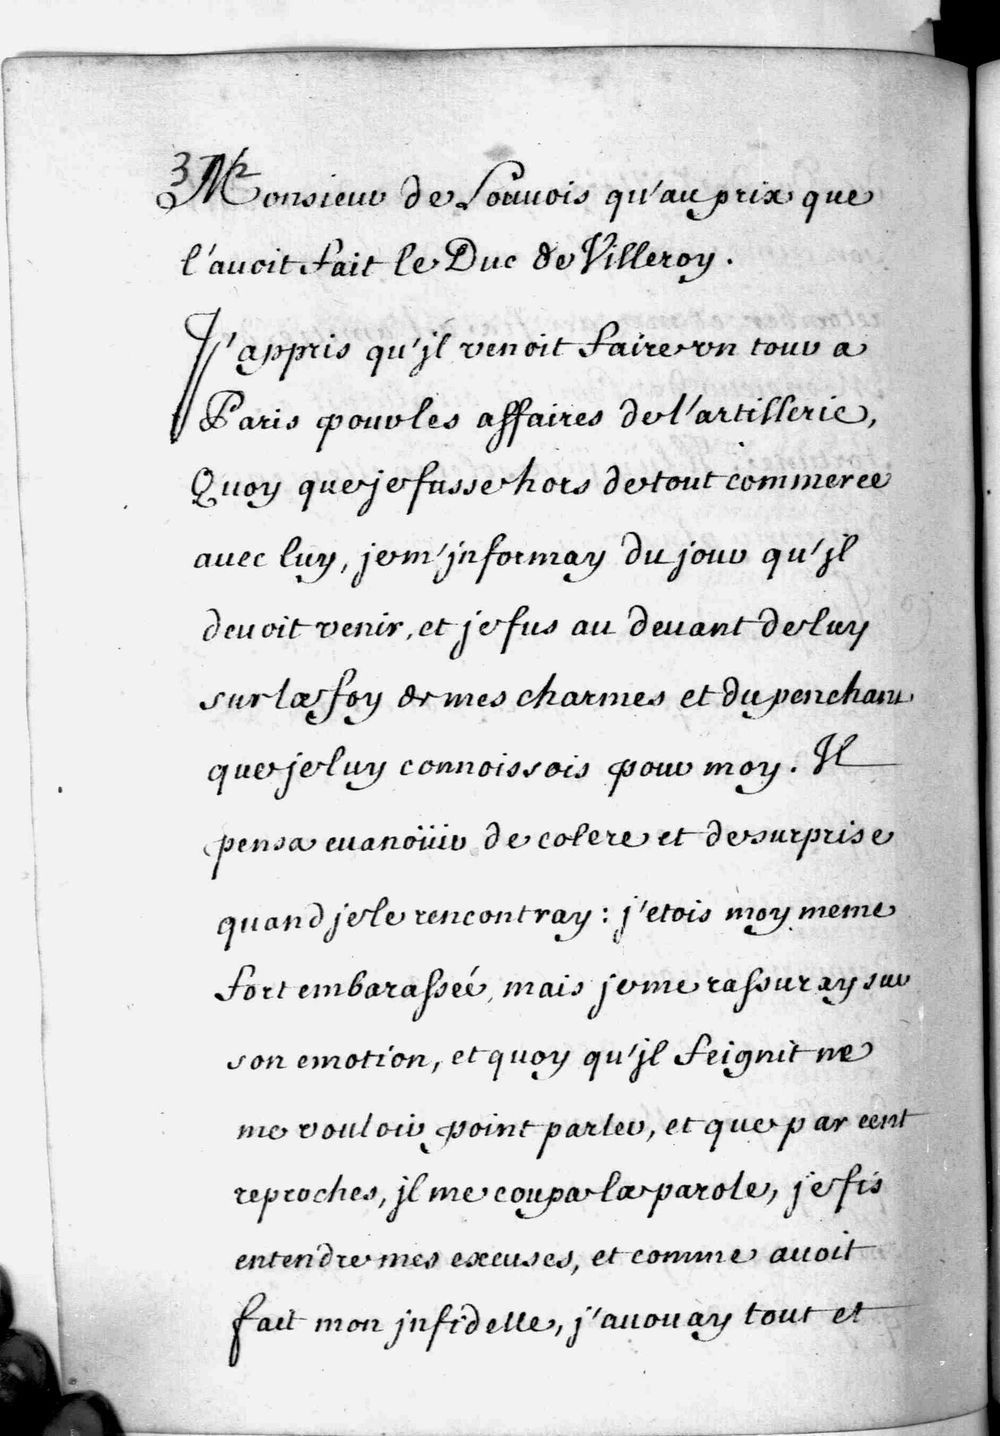 372
Monsieur de Louuois qu'au prix que
l'auoit fait le Duc de Villeroy.
J'appris qu'jl venoit faire vn tour a
Paris pour les affaires de l'artillerie,
Quoy que je fusse hors de tout commerce
avec luy, je m'jnformay du jour qu'jl
deuoit venir, et je fus au deuant de luy
sur la foy de mes charmes et du penchant
que je luy connoissois pour moy. Il
pensa euanoüir de colere et de surprise
quand je le rencontray : j'etois moy meme
fort embarassée, mais je me rassuray sur
son emotion, et quoy qu'jl feignit ne
me vouloir point parler, et que par cent
reproches, jl me coupa la parole, je fis
entendre mes excuses, et comme auoit
fait mon jnfidelle, j'auouay tout et